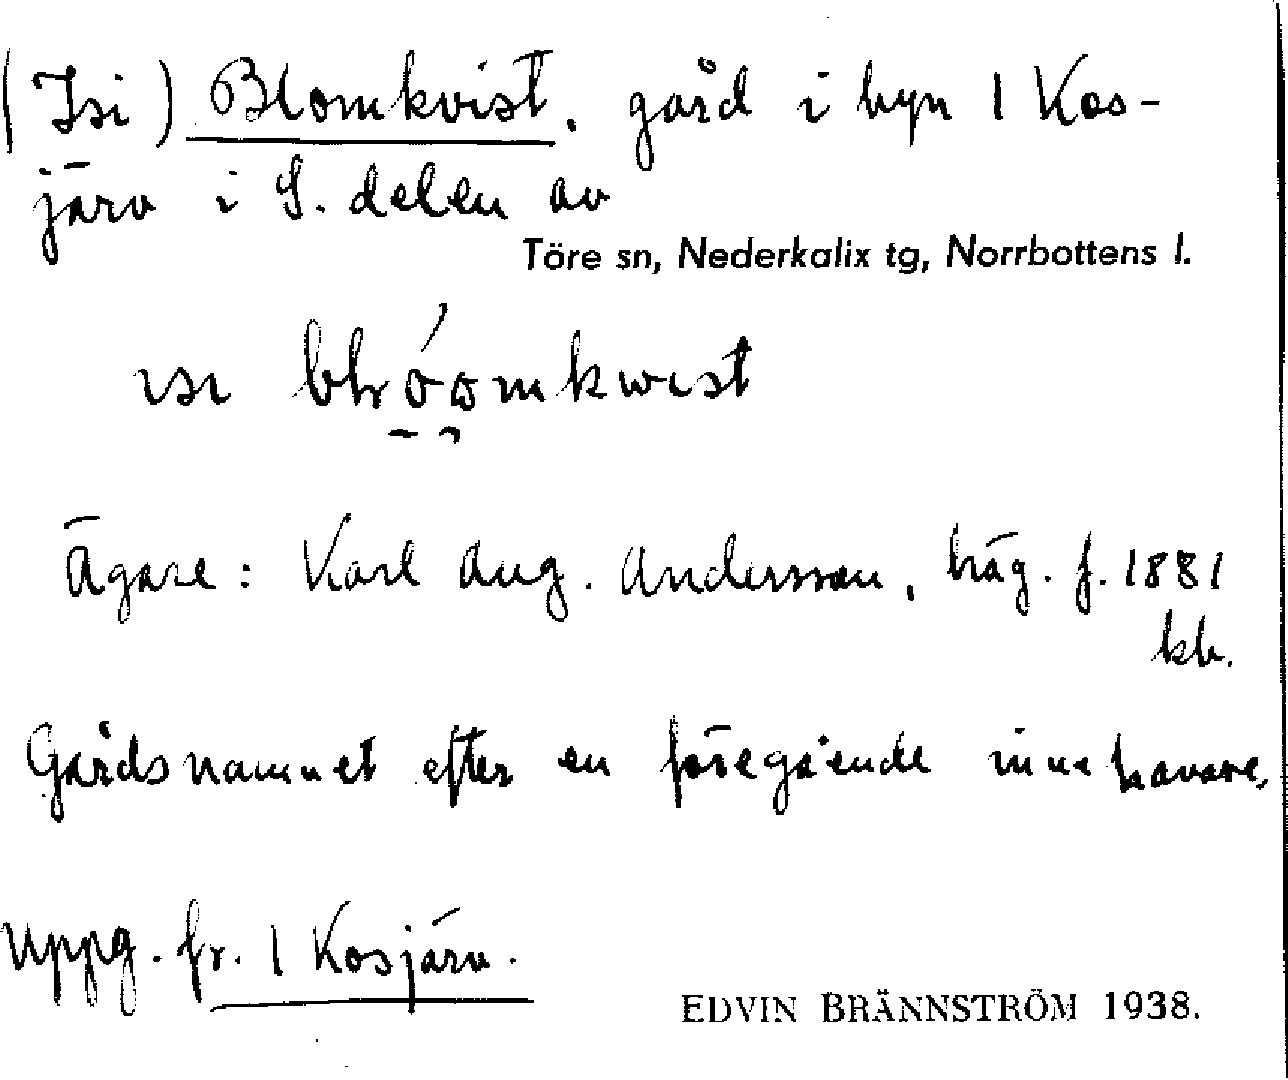 (Isi) Blomkvist, gård i byn 1 Kos-
järv i S. delen av
Töre sn, Nederkalix tg, Norrbottens l.
ısı
Ägare: Karl Aug. Andersson, häg. f. 1881
kb.
Gårdsnamnet efter en föregående innehavare.
Uppg. fr. 1 Kosjärv.
EDVIN BRÄNNSTRÖM 1938.